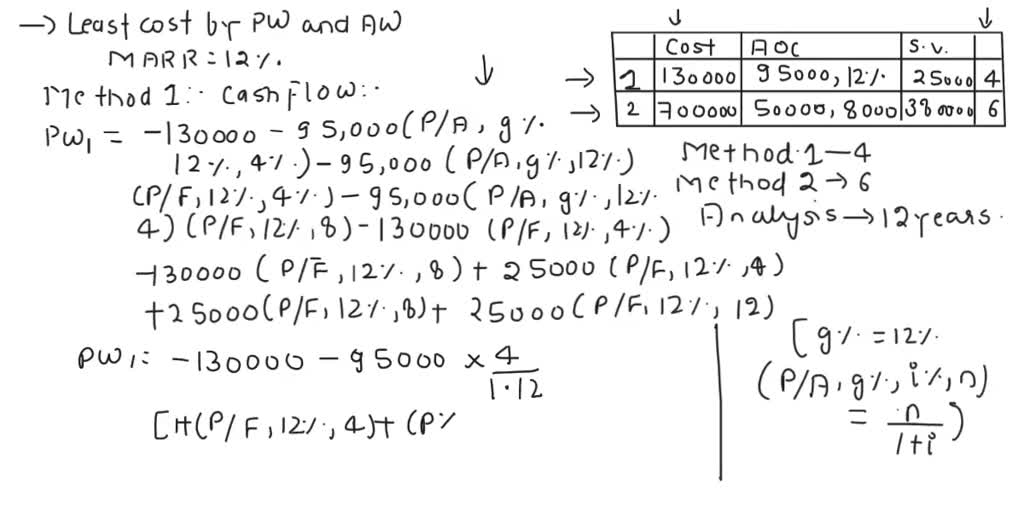 → Least cost by PW and AW
MARR = 12%.
Method 1:- Cash Flow:-
Cost AOC S.V.
1 130000 95000, 12% 25000 4
2 700000 50000, 8000 380000 6
PW1 = -130000 - 95,000 (P/A, g%.
12%, 4%.) - 95,000 (P/A, g%, 12%)
(P/F, 12%, 4%) - 95,000 (P/A, g%, 12%.
4) (P/F, 12%, 8) - 130000 (P/F, 12%, 4%.)
-130000 (P/F, 12%, 8) + 25000 (P/F, 12%, 4)
+25000 (P/F, 12%, 8) + 25000 (P/F, 12%, 12)
Method 1 - 4
Method 2 → 6
Analysis → 12 years.
PW1 = -130000 - 95000 × 4/1.12
[1+(P/F, 12%, 4) + (P%
[g% = 12%.
(P/A, g%, i%, n)
= n/1+i)